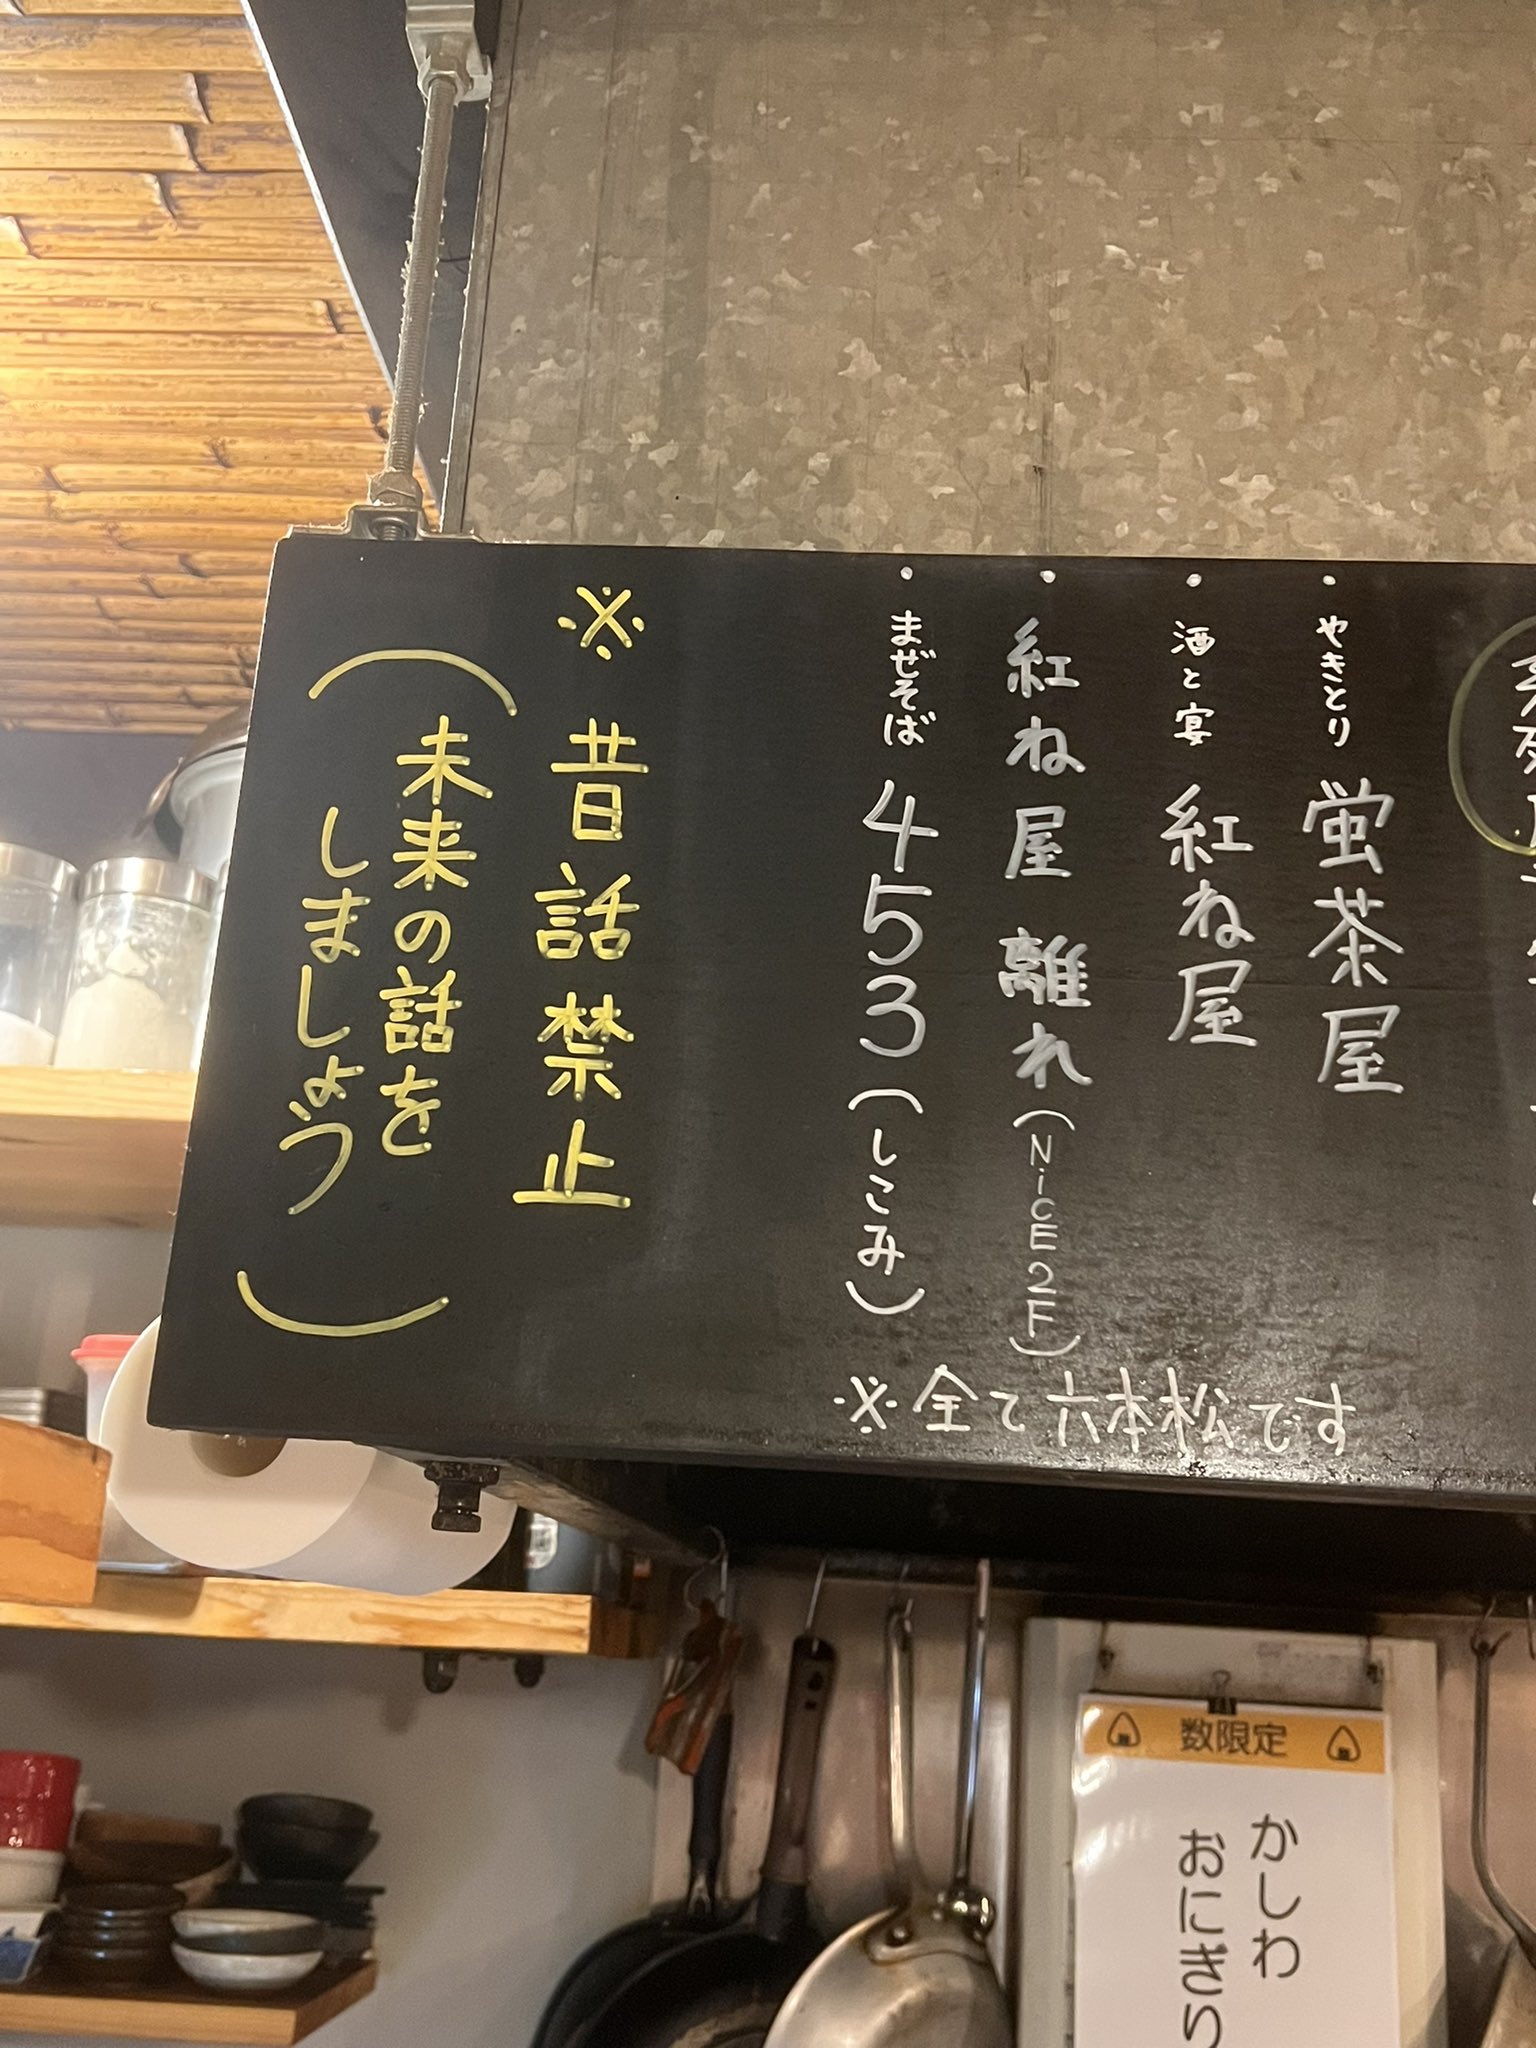 ・やきとり 蛍茶屋
・酒と宴 紅ね屋
・紅ね屋 離れ(NiCE2F)
・まぜそば 453(しこみ)
※全て六本松です
※昔話禁止
(未来の話を
しましょう)
数限定
かしわ
おにぎり